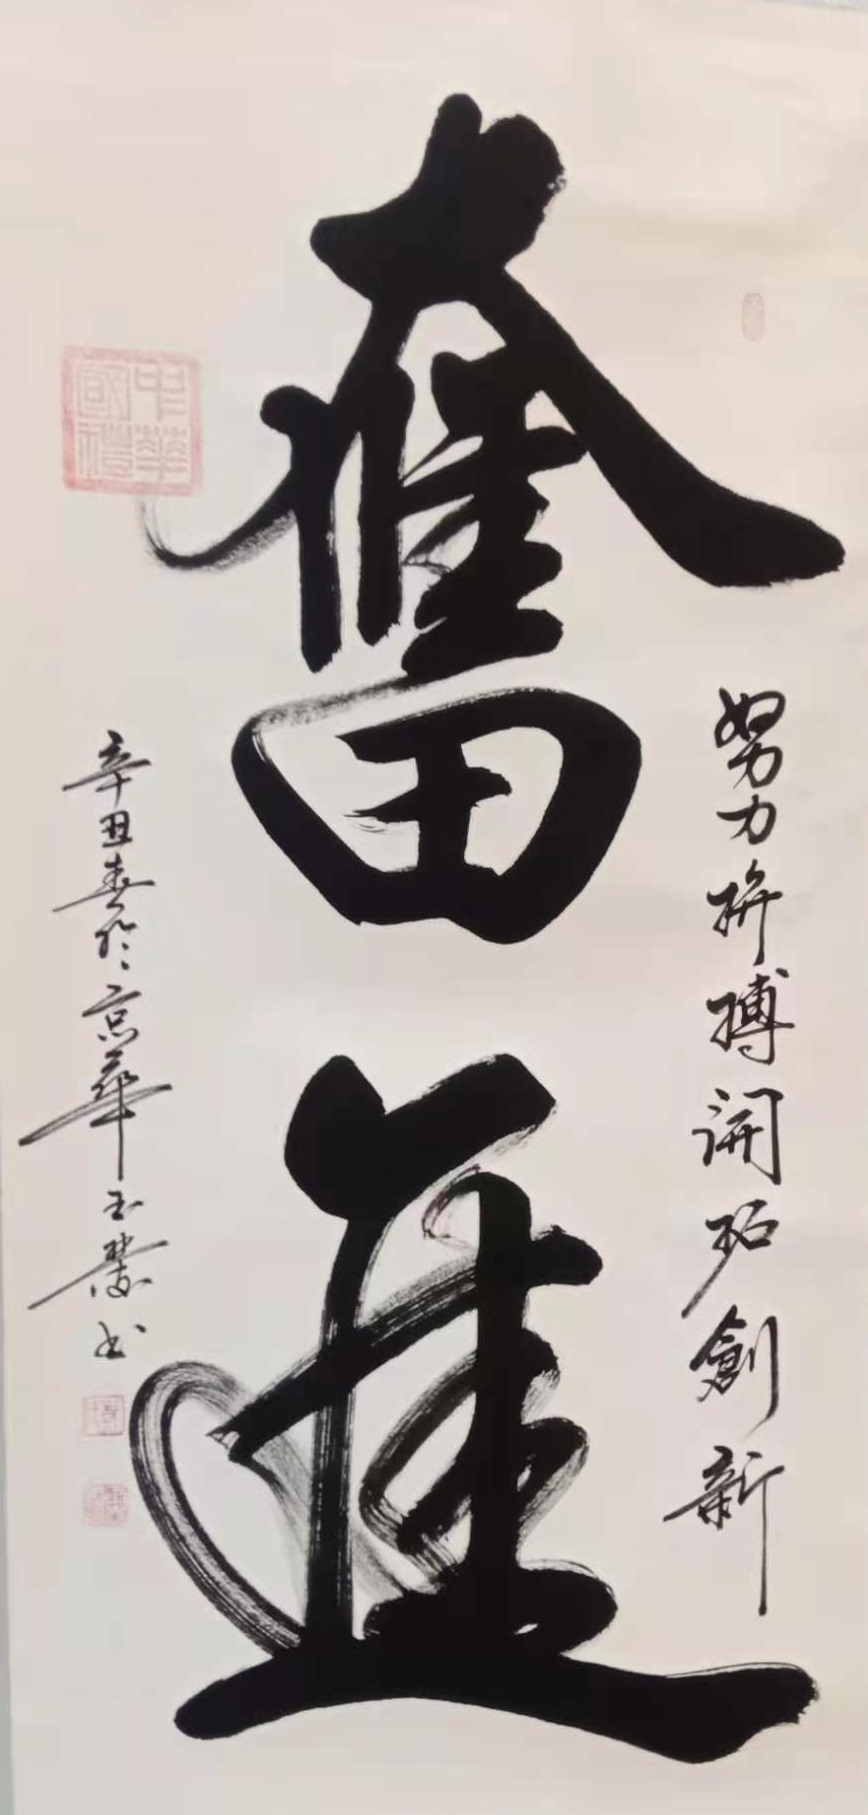 努力拚搏開拓創新
奮進
辛丑春於京華玉慧书
中華國禮